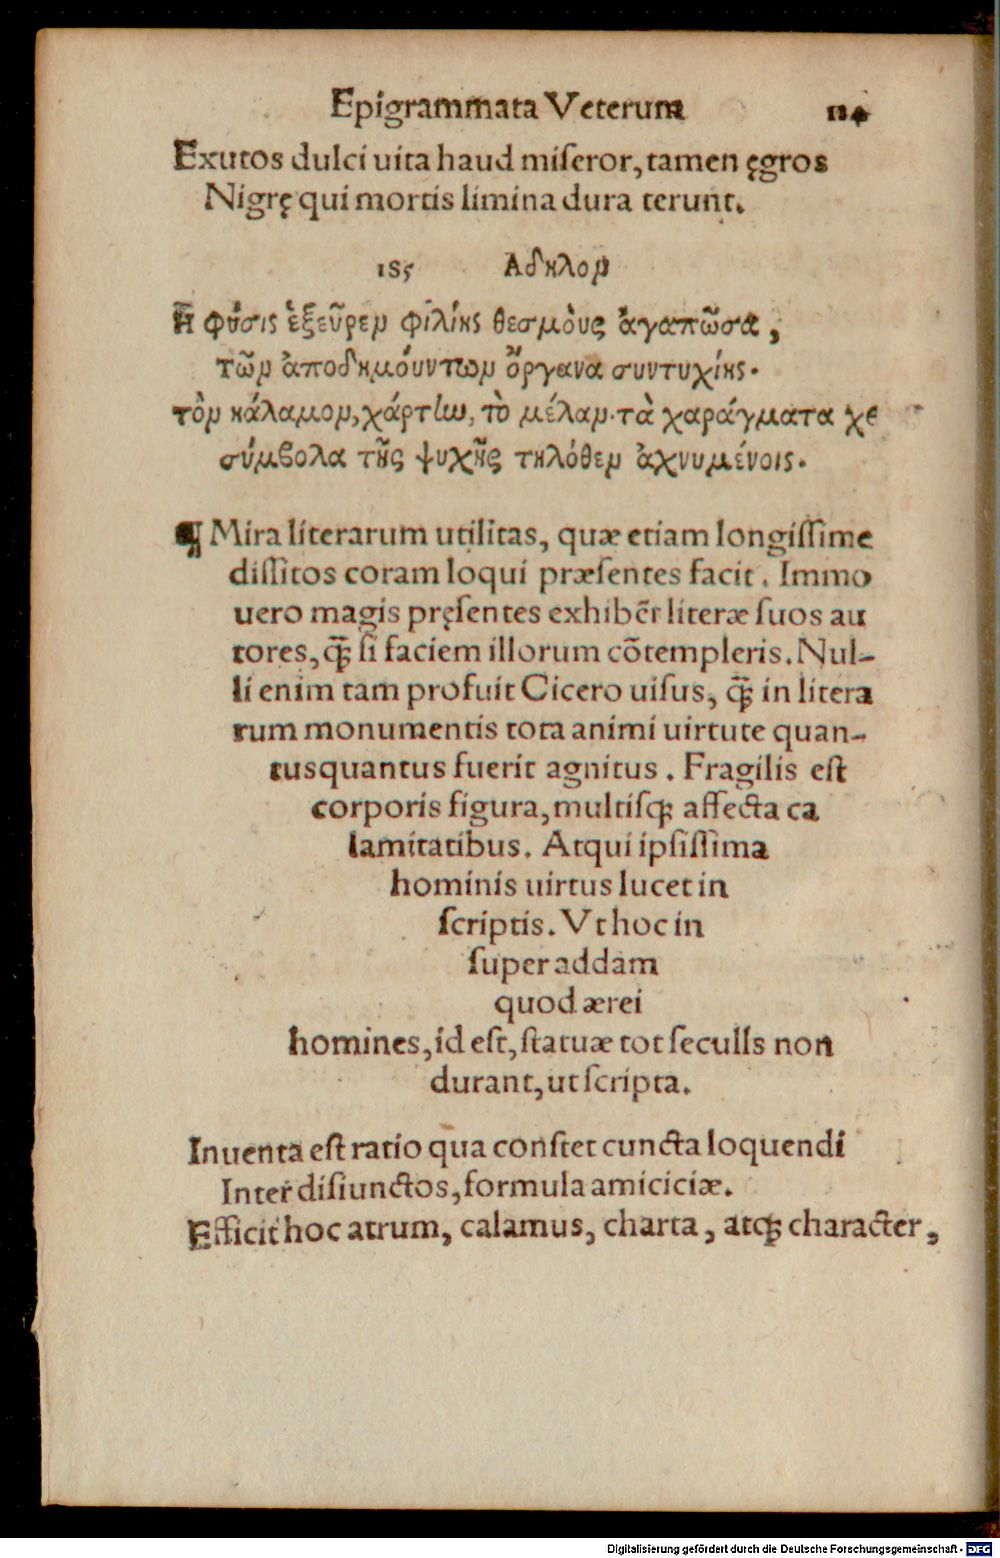 Epigrammata Veterum 124
Exutos dulci uita haud miſeror, tamen ęgros
Nigrę qui mortis limina dura terunt.
185 Αδηλον
Ἡ φύσις ἐξεῦρεν φιλίης θεσμοὺς ἀγαπῶσα,
τῶν ἀποδημούντων ὄργανα συντυχίης.
τὸν κάλαμον, χάρτην, τὸ μέλαν. τὰ χαράγματα χε
σύμβολα τῆς ψυχῆς τηλόθεν ἀχνυμένοις.
¶ Mira literarum utilitas, quæ etiam longiſſime
diſſitos coram loqui præſentes facit. Immo
uero magis pręſentes exhibēt literæ ſuos au
tores, q̃ȝ ſi faciem illorum cōtempleris. Nul-
li enim tam profuit Cicero uiſus, q̃ȝ in litera
rum monumentis tota animi uirtute quan-
tusquantus fuerit agnitus. Fragilis eſt
corporis figura, multiſqȝ affecta ca
lamitatibus. Atqui ipſiſſima
hominis uirtus lucet in
ſcriptis. Vt hoc in
ſuper addam
quod ærei
homines, id eſt, ſtatuæ tot ſeculIs non
durant, ut ſcripta.
Inuenta eſt ratio qua conſtet cuncta loquendi
Inter diſiunctos, formula amiciciæ.
Efficit hoc atrum, calamus, charta, atqȝ character,
Digitalisierung gefördert durch die Deutsche Forschungsgemeinschaft - DFG